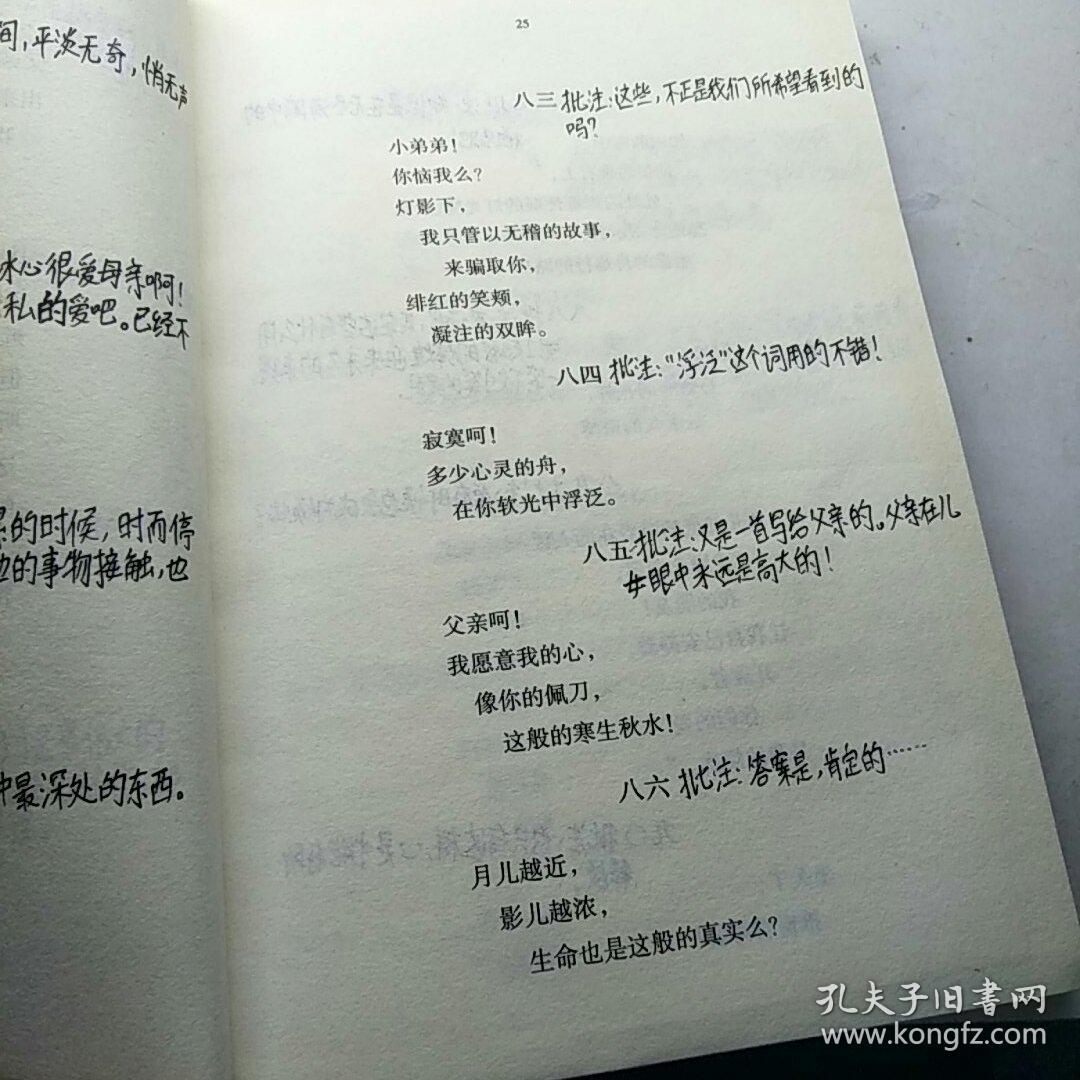 间，平淡无奇，悄无声
冰心很爱母亲啊！
私的爱吧。已经不
的时候，时而停
的事物接触，也
中最深处的东西。
25
八三 批注：这些，不正是我们所希望看到的
吗？
小弟弟！
你恼我么？
灯影下，
我只管以无稽的故事，
来骗取你，
绯红的笑颊，
凝注的双眸。
八四 批注：“浮泛”这个词用的不错！
寂寞呵！
多少心灵的舟，
在你软光中浮泛。
八五 批注：又是一首写给父亲的。父亲在儿
女眼中永远是高大的！
父亲呵！
我愿意我的心，
像你的佩刀，
这般的寒生秋水！
八六 批注：答案是，肯定的……
月儿越近，
影儿越浓，
生命也是这般的真实么？
孔夫子旧书网
www.kongfz.com